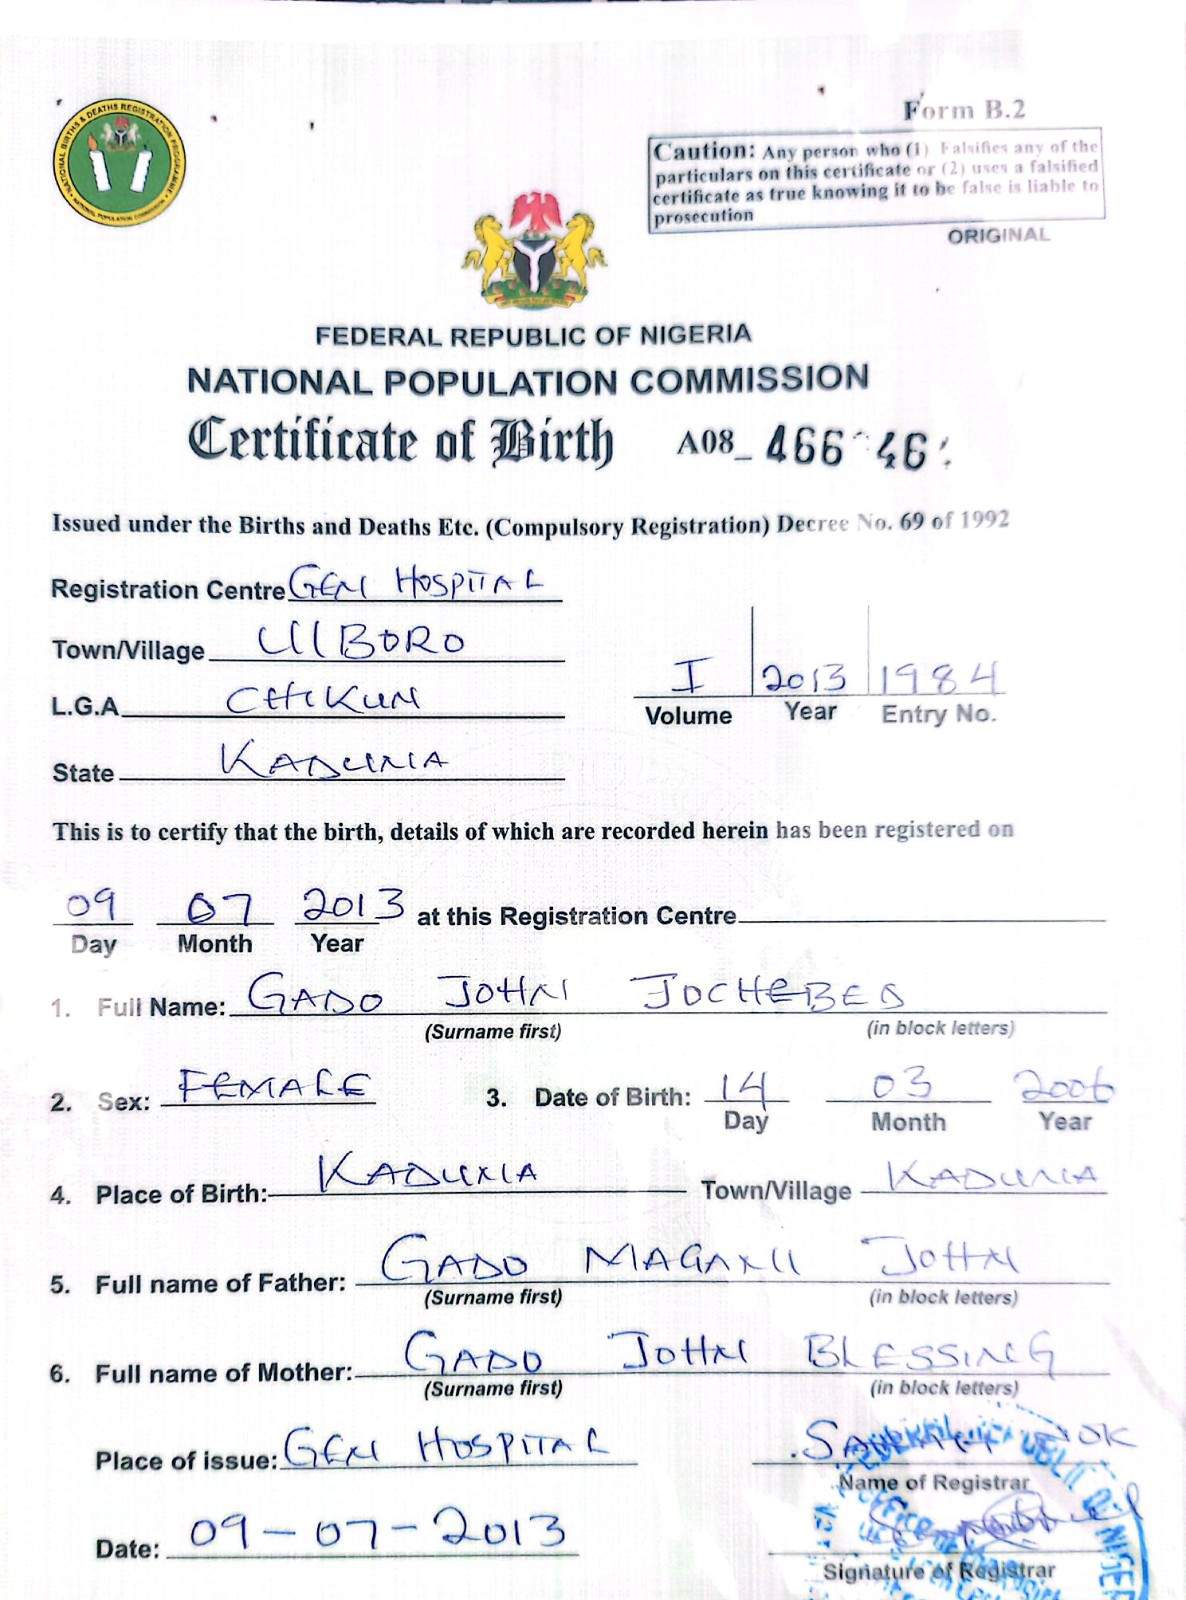 NATIONAL BIRTHS & DEATHS REGISTRATION PROGRAMME
NATIONAL POPULATION COMMISSION
Form B.2
Caution: Any person who (1) Falsifies any of the
particulars on this certificate or (2) uses a falsified
certificate as true knowing it to be false is liable to
prosecution
ORIGINAL
FEDERAL REPUBLIC OF NIGERIA
NATIONAL POPULATION COMMISSION
Certificate of Birth A08_ 466 46
Issued under the Births and Deaths Etc. (Compulsory Registration) Decree No. 69 of 1992
Registration Centre GEN HOSPITAL
Town/Village UIBORO
L.G.A CHIKUN
State KADUNA
I 2013 1984
Volume Year Entry No.
This is to certify that the birth, details of which are recorded herein has been registered on
09 07 2013 at this Registration Centre
Day Month Year
1. Full Name: GADO JOHN JOCHEBED
(Surname first) (in block letters)
2. Sex: FEMALE 3. Date of Birth: 14 03 2006
Day Month Year
4. Place of Birth: KADUNA Town/Village KADUNA
5. Full name of Father: GADO MAGANI JOHN
(Surname first) (in block letters)
6. Full name of Mother: GADO JOHN BLESSING
(Surname first) (in block letters)
Place of issue: GEN HOSPITAL
Name of Registrar
Date: 09-07-2013
Signature of Registrar